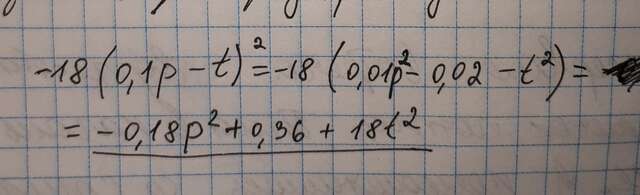 -18 (0,1p - t)² = -18 (0,01p² - 0,02 - t²) =
= - 0,18p² + 0,36 + 18t²